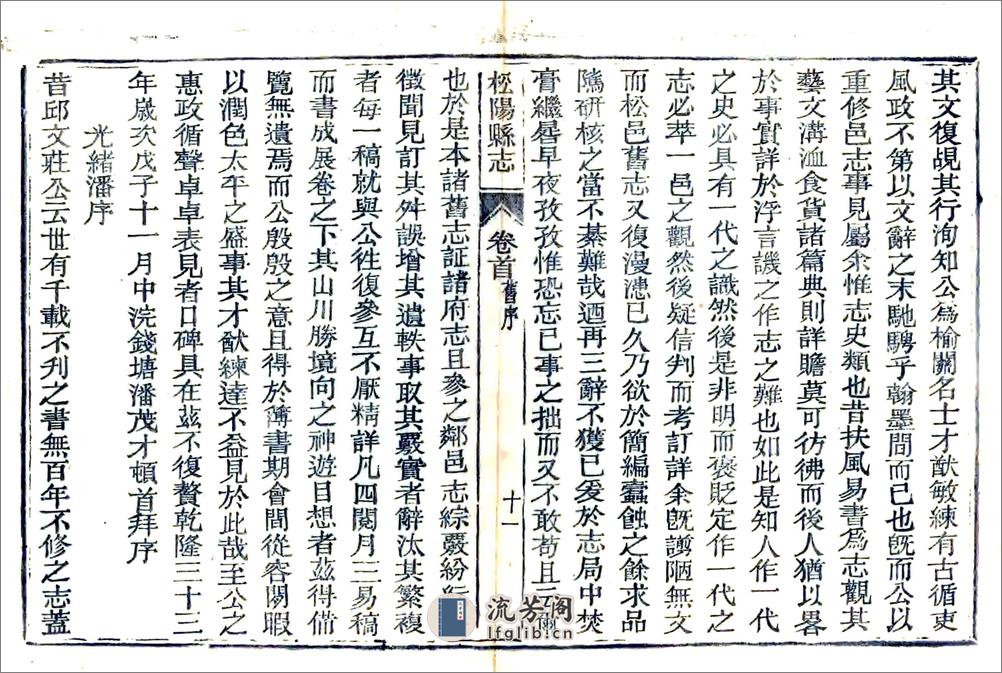 其文復覘其行洵知公為榆關名士才猷敏練有古循吏
風政不第以文辭之末馳騁乎翰墨間而已也旣而公以
重修邑志事見屬余惟志史類也昔扶風易書為志觀其
藝文溝洫食貨諸篇典則詳贍莫可彷彿而後人猶以畧
於事實詳於浮言譏之作志之難也如此是知人作一代
之史必具有一代之識然後是非明而褒貶定作一代之
志必萃一邑之觀然後疑信判而考訂詳余旣譾陋無文
而松邑舊志又復漫漶已久乃欲於簡編蠧蝕之餘求品
隲研核之當不綦難哉迺再三辭不獲已爰於志局中焚
膏繼晷早夜孜孜惟恐忘已事之拙而又不敢苟且
松陽縣志
卷首
舊序
十一
也於是本諸舊志証諸府志且參之鄰邑志綜覈紛
徵聞見訂其舛誤增其遺軼事取其覈實者辭汰其繁複
者每一稿就與公徃復參互不厭精詳凡四閱月三易稿
而書成展卷之下其山川勝境向之神遊目想者茲得備
覽無遺焉而公殷殷之意且得於簿書期會間從容閒暇
以潤色太平之盛事其才猷練達不益見於此哉至公之
惠政循聲卓卓表見者口碑具在茲不復贅乾隆三十三
年歲次戊子十一月中浣錢塘潘茂才頓首拜序
光緒潘序
昔邱文莊公云世有千載不刋之書無百年不修之志蓋
流芳阁
lfglib.cn